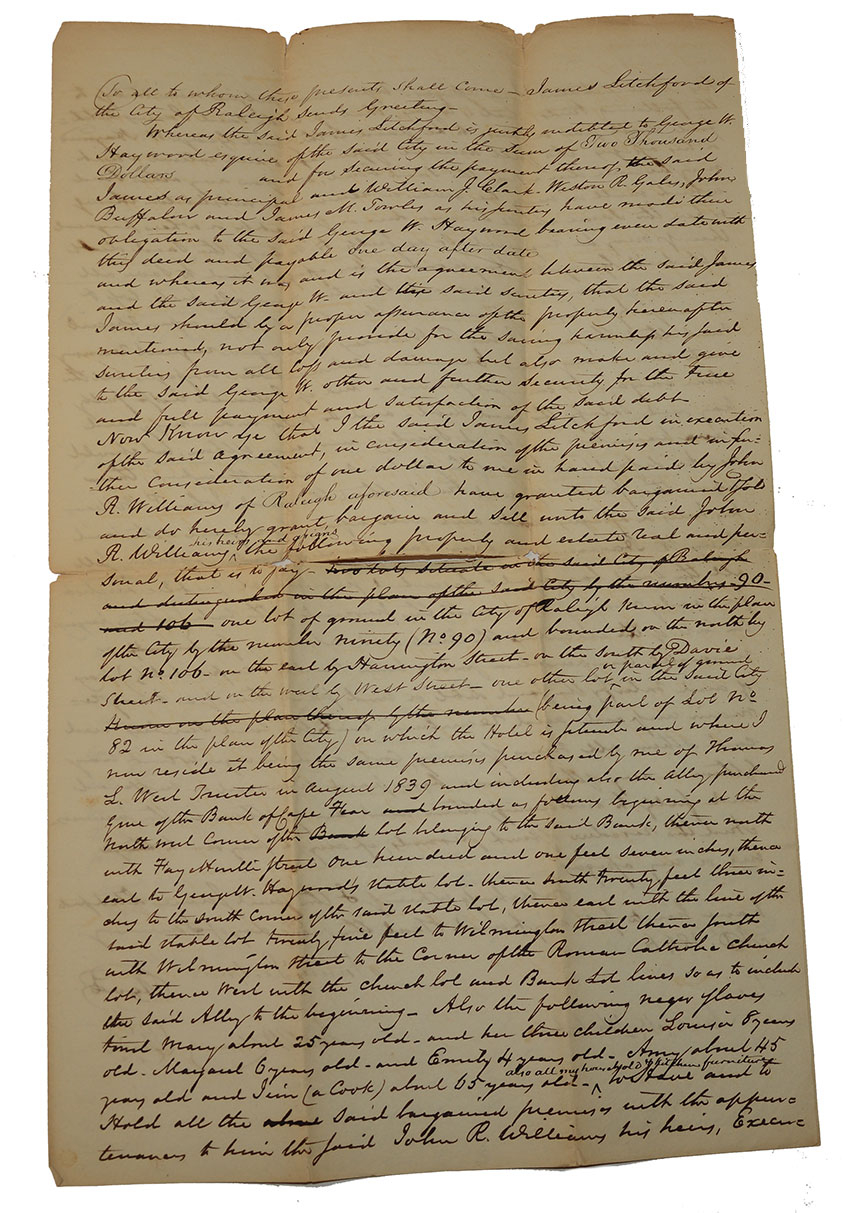 To all to whom these presents shall come – James Litchford of
the City of Raleigh sends Greeting –
Whereas the said James Litchford is justly indebted to George W.
Haywood esquire of the said City in the sum of Two Thousand
Dollars and for securing the payment thereof, the said
James as principal and William J. Clark Weston R. Gales, John
Buffalow and James M. Towles as his sureties have made their
obligation to the said George W. Haywood bearing even date with
this deed and payable one day after date
and whereas it was and is the agreement between the said James
and the said George W. and his said sureties, that the said
James should by a proper assurance of the property hereinafter
mentioned, not only provide for the saving harmless his said
sureties from all loss and damage but also make and give
to the said George W. other and further security for the true
and full payment and satisfaction of the said debt
Now Know ye that I the said James Litchford in execution
of the said agreement, in consideration of the premises and in fur-
ther consideration of one dollar to me in hand paid by John
R. Williams of Raleigh aforesaid have granted bargained & sold
and do hereby grant, bargain and sell unto the said John
his heirs and assigns
R. Williams, the following property and estate real and per-
sonal, that is to say – Two lots situate in the said City of Raleigh
and distinguished in the plan of the said City by the numbers 90
and 106 – one lot of ground in the City of Raleigh Known in the plan
of the City by the number ninety (No. 90) and bounded on the north by
lot No. 106 – on the east by Harrington Street – on the south by Davie
or parcel of ground
Street – and on the west by West Street – one other lot in the said City
Known in the plan thereof by the number (being part of Lot No
82 in the plan of the City) on which the Hotel is situate and where I
now reside it being the same premises purchased by me of Thomas
L. West Trustee in August 1839 and including also the Alley purchased
by me of the Bank of Cape Fear and bounded as follows beginning at the
North west Corner of the Bank lot belonging to the said Bank, thence north
with Fayetteville Street one hundred and one feet seven inches, thence
east to George W. Haywood's Stable lot – thence south twenty feet three in-
ches to the south Corner of the said Stable lot, thence east with the line of the
said Stable lot twenty five feet to Wilmington Street thence South
with Wilmington Street to the Corner of the Roman Catholic Church
lot, thence West with the church lot and Bank Lot lines so as to include
the said Alley to the beginning – Also the following negro slaves
towit Mary about 25 years old – and her three children Louisa 8 years
old – Margaret 6 years old – and Emily 4 years old – Amy about 45
also all my household & kitchen furniture
years old and Jim (a Cook) about 65 years old – to Have and to
Hold all the above said bargained premises with the appur-
tenances to him the said John R. Williams his heirs, Execu-